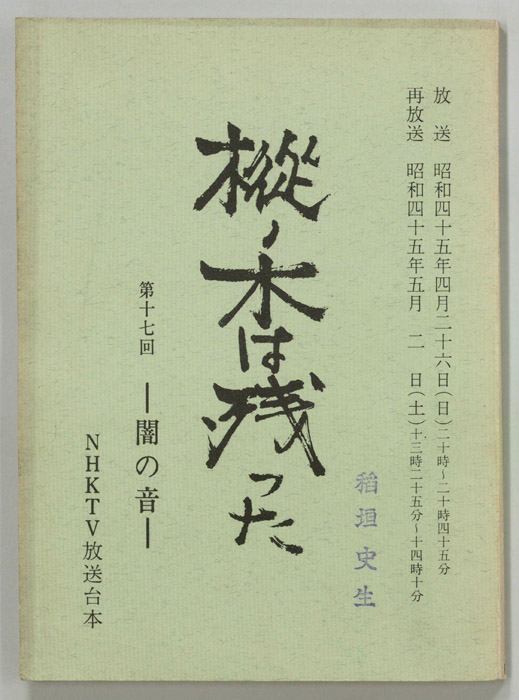 放送 昭和四十五年四月二十六日(日)二十時~二十時四十五分
再放送 昭和四十五年五月 二 日(土)十三時二十五分~十四時十分
稲垣史生
樅ノ木は残った
第十七回 ―闇の音―
NHKTV放送台本